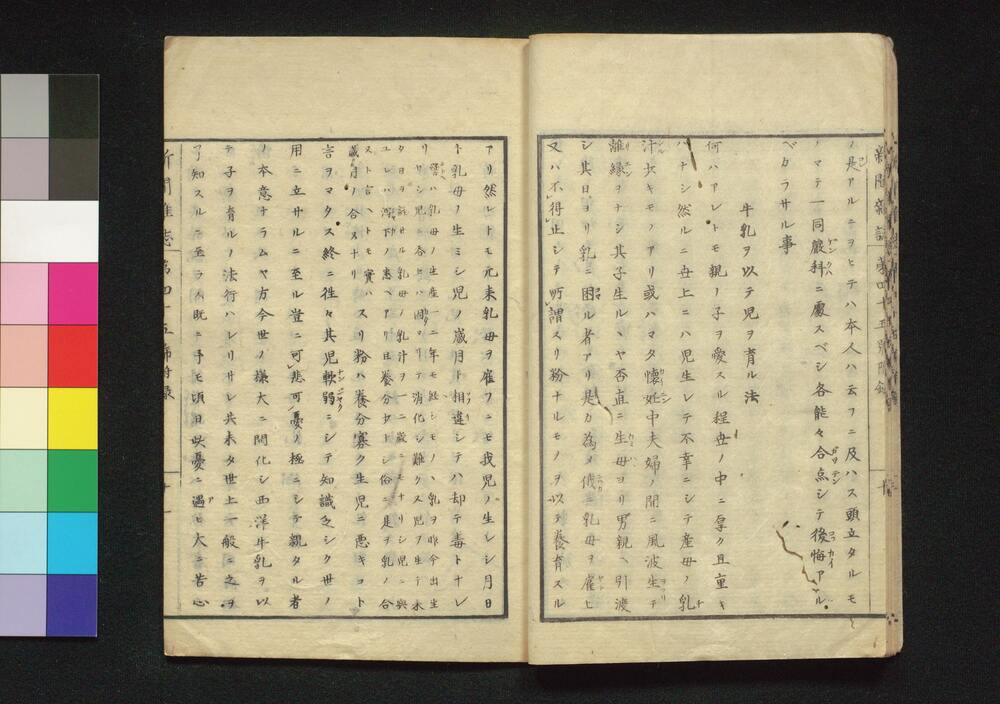 ノ是アルニヲヒテハ本人ハ云フニ及ハス頭立タルモ
ノマテ一同嚴科ニ處スベシ各能々合点シテ後悔アル
ベカラサル事
牛乳ヲ以テ児ヲ育ル法
何ハアレトモ親ノ子ヲ愛スル程世ノ中ニ厚ク且重キ
ハナシ然ルニ世上ニハ児生レテ不幸ニシテ産母ノ乳
汁出キモノアリ或ハマタ懐妊中夫婦ノ間ニ風波生テ
離縁ヲナシ其子生ルヽヤ否直ニ生母ヨリ男親ヘ引渡
シ其日ヨリ乳ニ困ル者アリ是カ為メ俄ニ乳母ヲ雇ヒ
又ハ不得止シテ所謂スリ粉ナルモノヲ以テ養育スル
アリ然レトモ元来乳母ヲ雇フニモ我児ノ生レシ月日
ト乳母ノ生ミシ児ノ歳月ト相違シテハ却テ毒トナレ
リ譬ハ乳母ノ生産一二年モ経シモノヽ乳ヲ昨今出生
セシ児ニ呑セハ固マリテ消化シ難ク又児ヲ生テ未
タ日ヲ経サル乳母ノ乳汁ヲ一二歳ニモナリシ児ニ與
ユレハ下ノ患ヘアリ且養分少トシ俗ニ是ヲ乳ノ合
ス卜言ヘトモ實ハ
歳月ノ合スナリスリ粉ハ養分寡ク生児ニ悪キコト
言ヲマタス終ニ往々其児軟弱ニシテ知識乏シク世ノ
用ニ立サルニ至ル豈ニ可悲可憂ノ極ニシテ親タル者
ノ本意ナラムヤ方今世ノ様大ニ開化シ西洋牛乳ヲ以
テ子ヲ育ルノ法行ハレリサレ共未タ世上一般ニ之ヲ
了知スルニ至ラス既ニ予モ頃日此憂ニ遇ヒ大ニ苦心